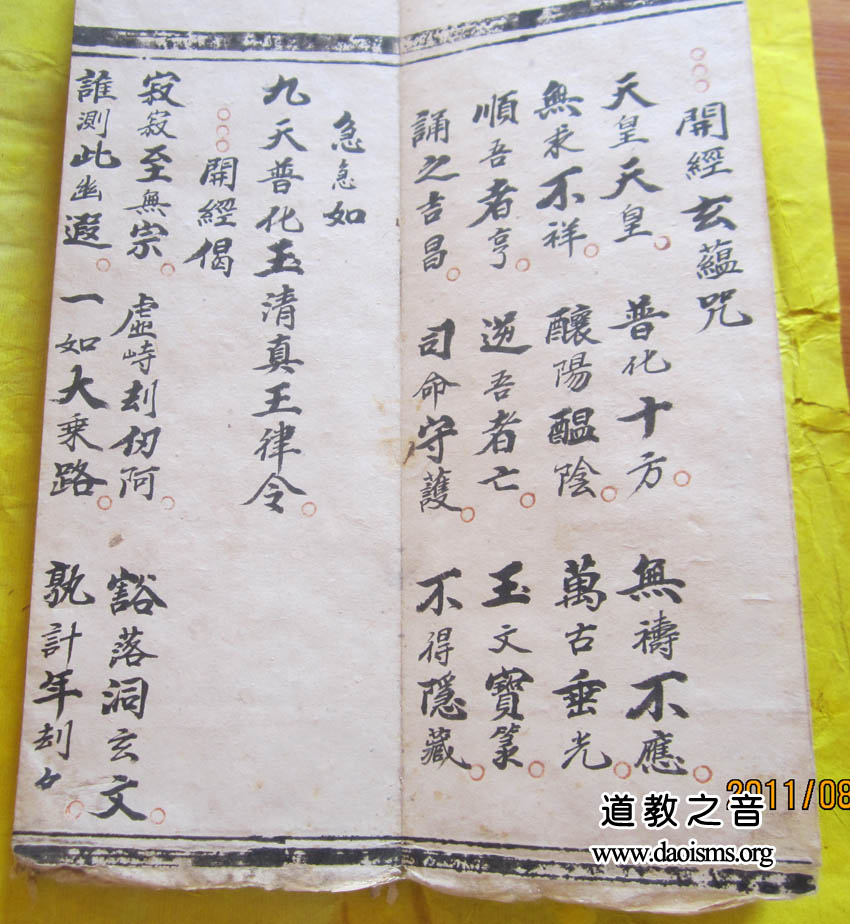 開經玄蘊咒
天皇天皇 普化十方 無禱不應
無求不祥 釀陽醖陰 萬古垂光
順吾者亨 逆吾者亡 玉文寶篆
誦之吉昌 司命守護 不得隱藏
急急如
九天普化玉清真王律令
開經偈
寂寂至無宗 虛峙刦仞阿 豁落洞玄文
誰測此幽遐 一如大乘路 孰計年刦
2011/08
道教之音
www.daoisms.org